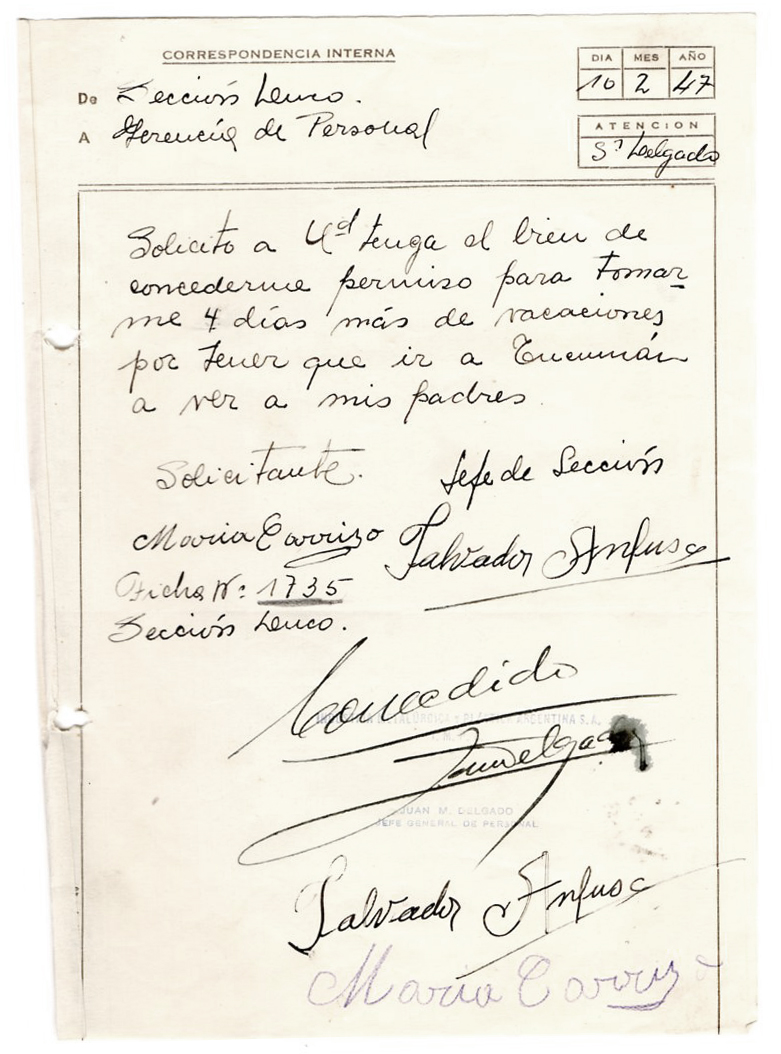 CORRESPONDENCIA INTERNA
DIA MES AÑO
10 2 47
De Sección Lenco.
A Gerencia de Personal
ATENCION
Sr Delgado
Solicito a Ud tenga el bien de
concederme permiso para tomar
me 4 días más de vacaciones
por tener que ir a Tucumán
a ver a mis padres
Solicitante. Jefe de Sección
Maria Carrizo Salvador Anfuso
Ficha Nº: 1735
Sección Lenco.
Concedido
INDUSTRIA METALÚRGICA Y PLÁSTICA ARGENTINA S.A.
JUAN M. DELGADO
JEFE GENERAL DE PERSONAL
Salvador Anfuso
Maria Carrizo